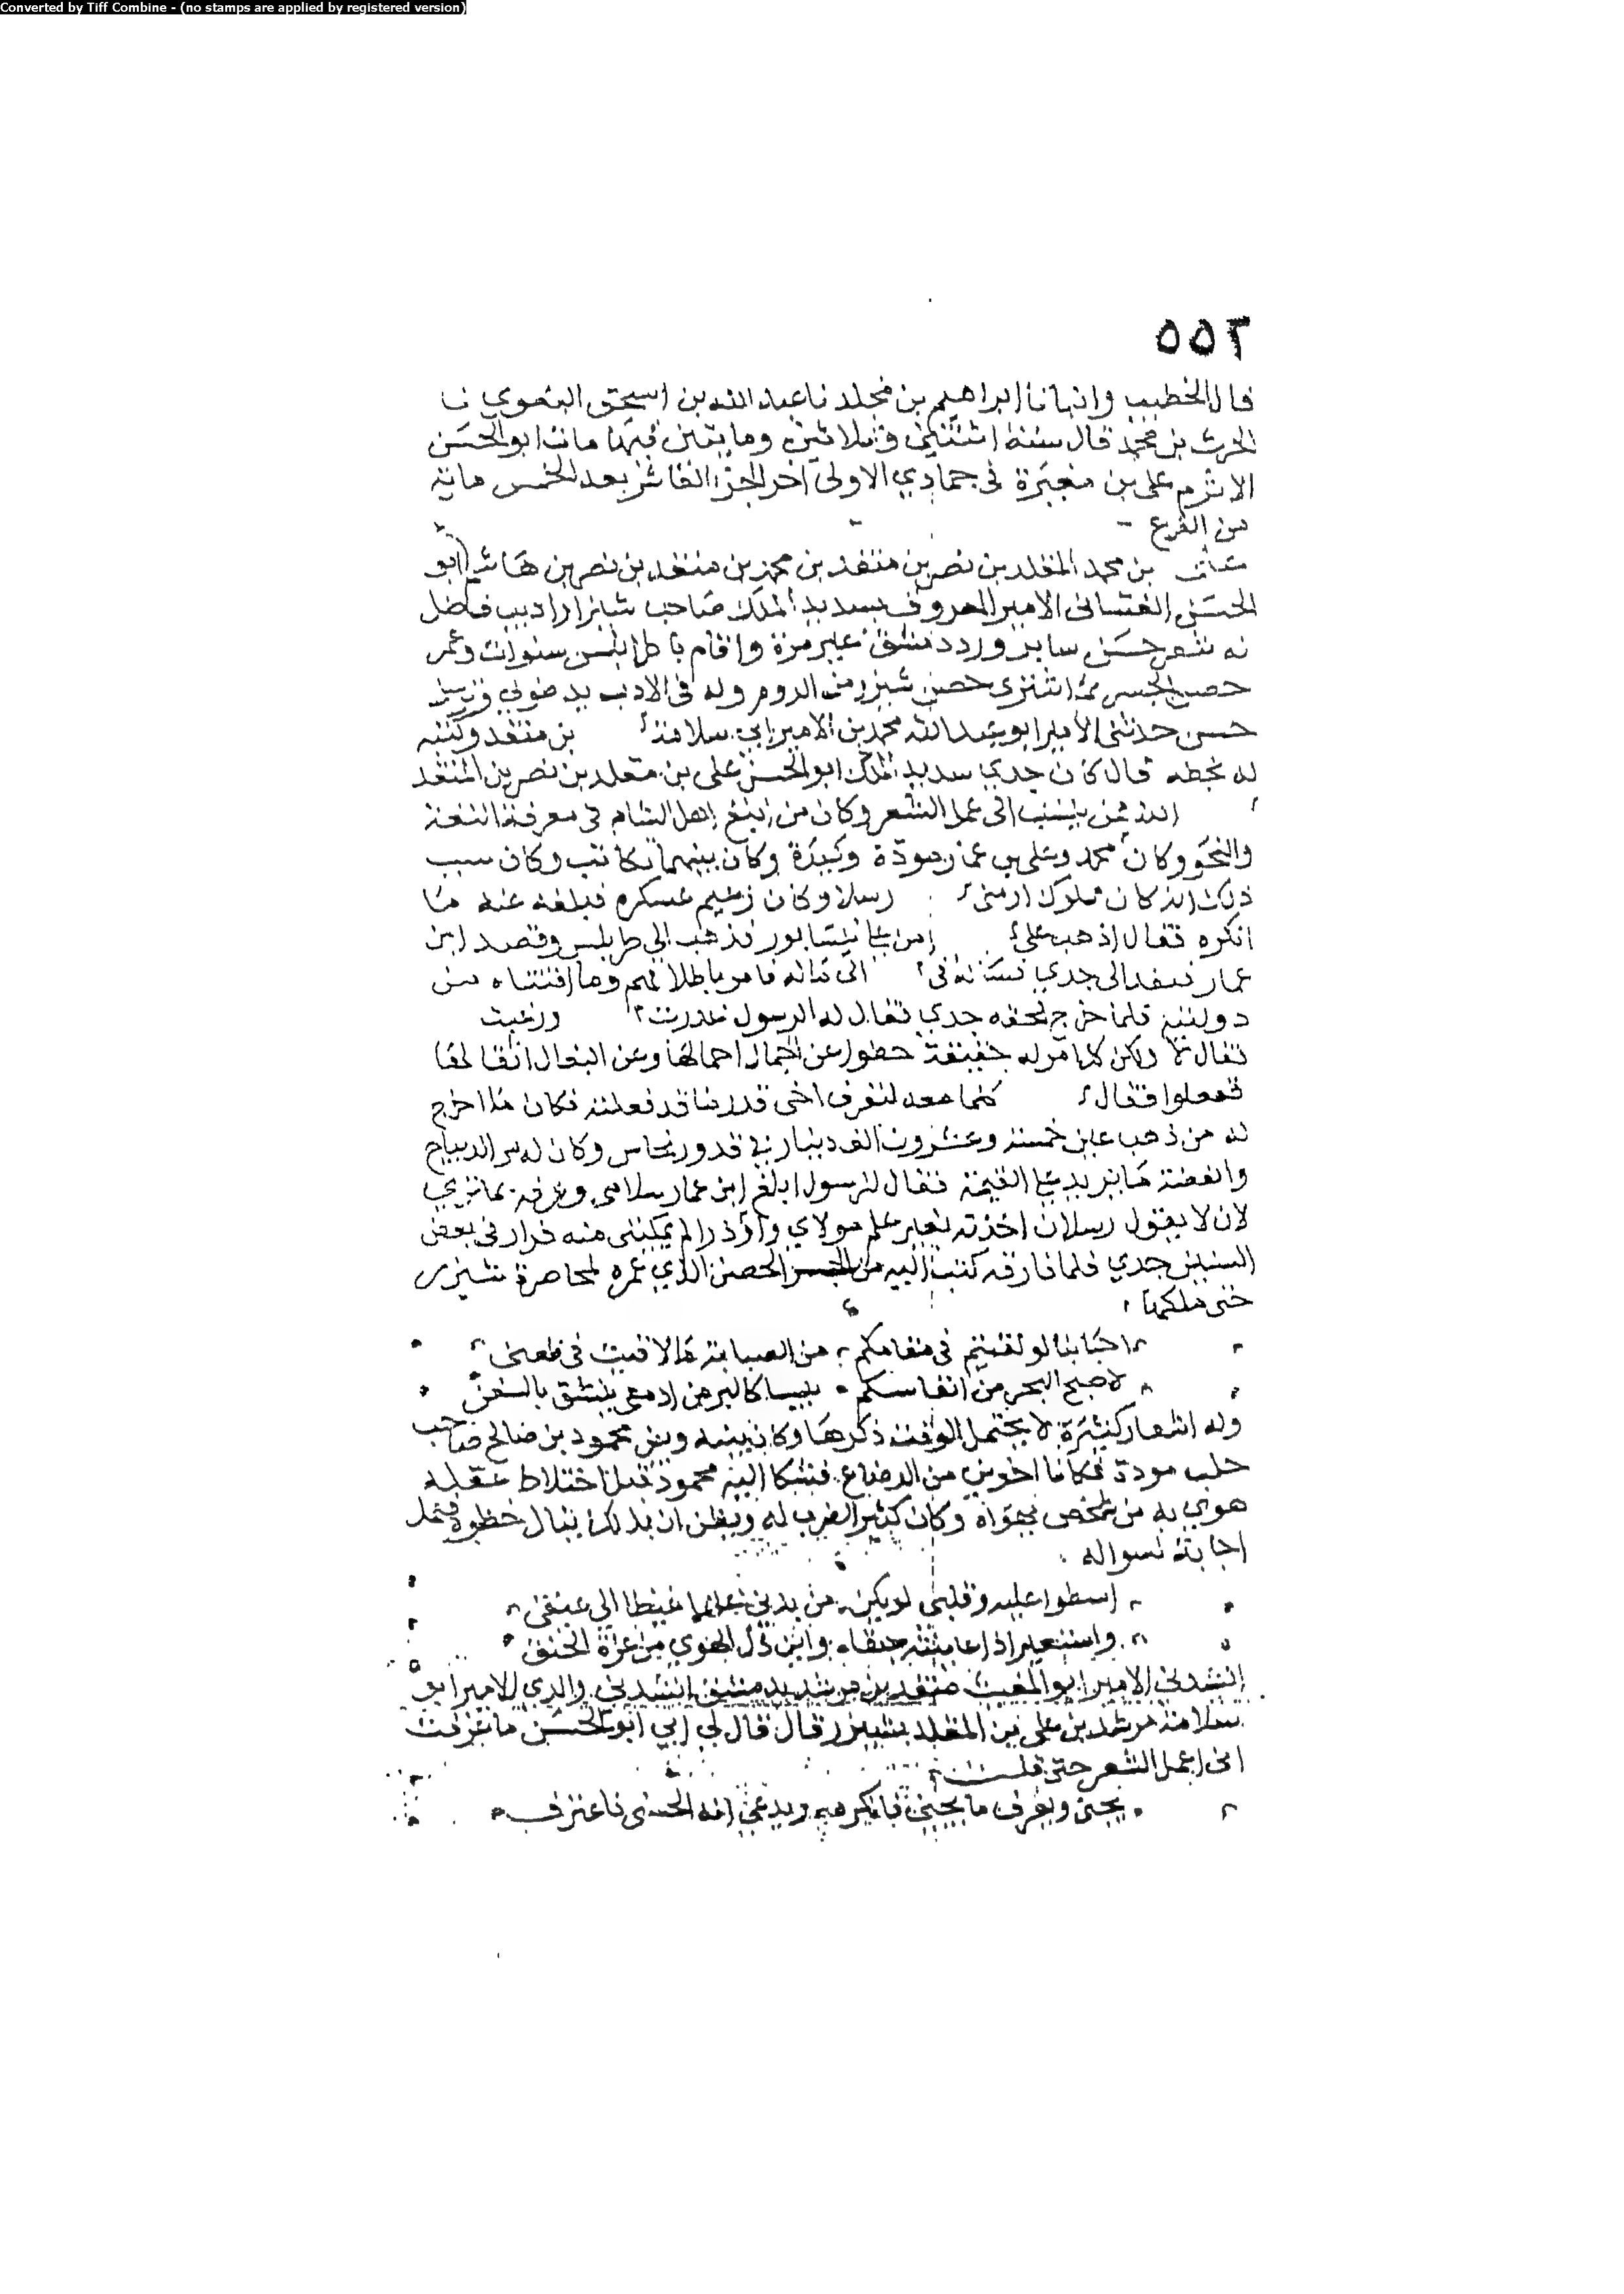 Converted by Tiff Combine - (no stamps are applied by registered version)
٥٥٢
قال الخطيب وانبانا ابراهيم بن مخلد نا عبد الله بن اسحق البغوي نا
الحرث بن محمد قال سنة اثنتين وثلاثين ومايتين فيها مات ابو الحسن
الاثرم على بن مغيرة في جمادي الاولى اخر الجز العاشر بعد الخمس ماية
من الفرع
بن محمد المقلد بن نصر بن منقذ بن محمد بن منقذ بن نصر بن هاشم ابو
الحسن الامير المعروف بسديد الملك صاحب شيزر اديب فاضل
له شعر حسن ساير ورد دمشق غير مرة واقام باطرابلس سنوات وعمر
حصن الجسر ثم اشترى حصن شيزر من الروم وله في الادب يد طولي
حسن حدثني الامير ابو عبد الله محمد بن الامير ابي سلامة بن منقذ وكتبه
له بخطه قال كان جدي سديد الملك ابو الحسن على بن مقلد بن نصر بن المنقذ
ينسب الى عمل الشعر وكان من اهل الشام في معرفة اللغة
والنحو وكان محمد وعلى بن عمار مودة وكيدة وكان بينهما تكاتب وكان سبب
ذلك انه كان مملوك ارمني رسلان وكان زعيم عسكره فبلغه عنه ما
انكره فقال اذهب على نفسك فذهب الى طرابلس وقصد ابن
عمار الى جدي الى ماله فامر باطلاقهم وما اقتناه من
دولته فلما خرج لحقه جدي فقال له الرسول غدرت ورغبت
فقال لا ولكن كل امر له حقيقة حطوا عن الجمال احمالها وعن البغال اثقالها
ففعلوا فقال معه ليعرف اخى قدر ما قد فعلته فكان ما اخرج
له من ذهب عين خمسة وعشرون الف دينار في قدور نحاس وكان له من الديباج
والفضة ما يزيد على القيمة فقال للرسول ابلغ ابن عمار سلامي وعرفه بما تري
لان لا يقول رسلان اخذته بغير علم مولاي ولو درا لم يمكني منه فزار في بعض
السنين جدي فلما فارقه كتب اليه من الحصن الذي عمره لمحاصرة شيزر
حتى ملكها
احبابنا لو لقيتم في مقامكم من الصبابة ما لاقيت في ظعني
لاصبح البحر من انفاسكم يبسا كالبر من ادمعي ينشق بالسفن
وله اشعار كثيرة لا يحتمل الوقت ذكرها وكان بينه وبين محمود بن صالح صاحب
حلب مودة وكانا اخوين من الرضاع فشكا اليه محمود قبل اختلاط عقله
هوي به من شخص يهواه وكان كثير الضرب له ويظن ان بذلك ينال حظوة فعمل
اجابة لسواله
اسطوا عليه وقلبي لو يكن من يدي غلهما غيظا الى عنقي
واستعير اذا عاينته حنقا واين ذل الهوي من عزة الحنق
انشدني الامير ابو المغيث منقذ بن مرشد بدمشق انشدني والدي الامير ابو
سلامة مرشد بن على بن المقلد بشيزر قال قال لي ابي ابو الحسن ما عرفت
انى اعمل الشعر حتى قلت
يجني ويعرف ما يجني فانكره ويدعي انه الحسنى فاعترف